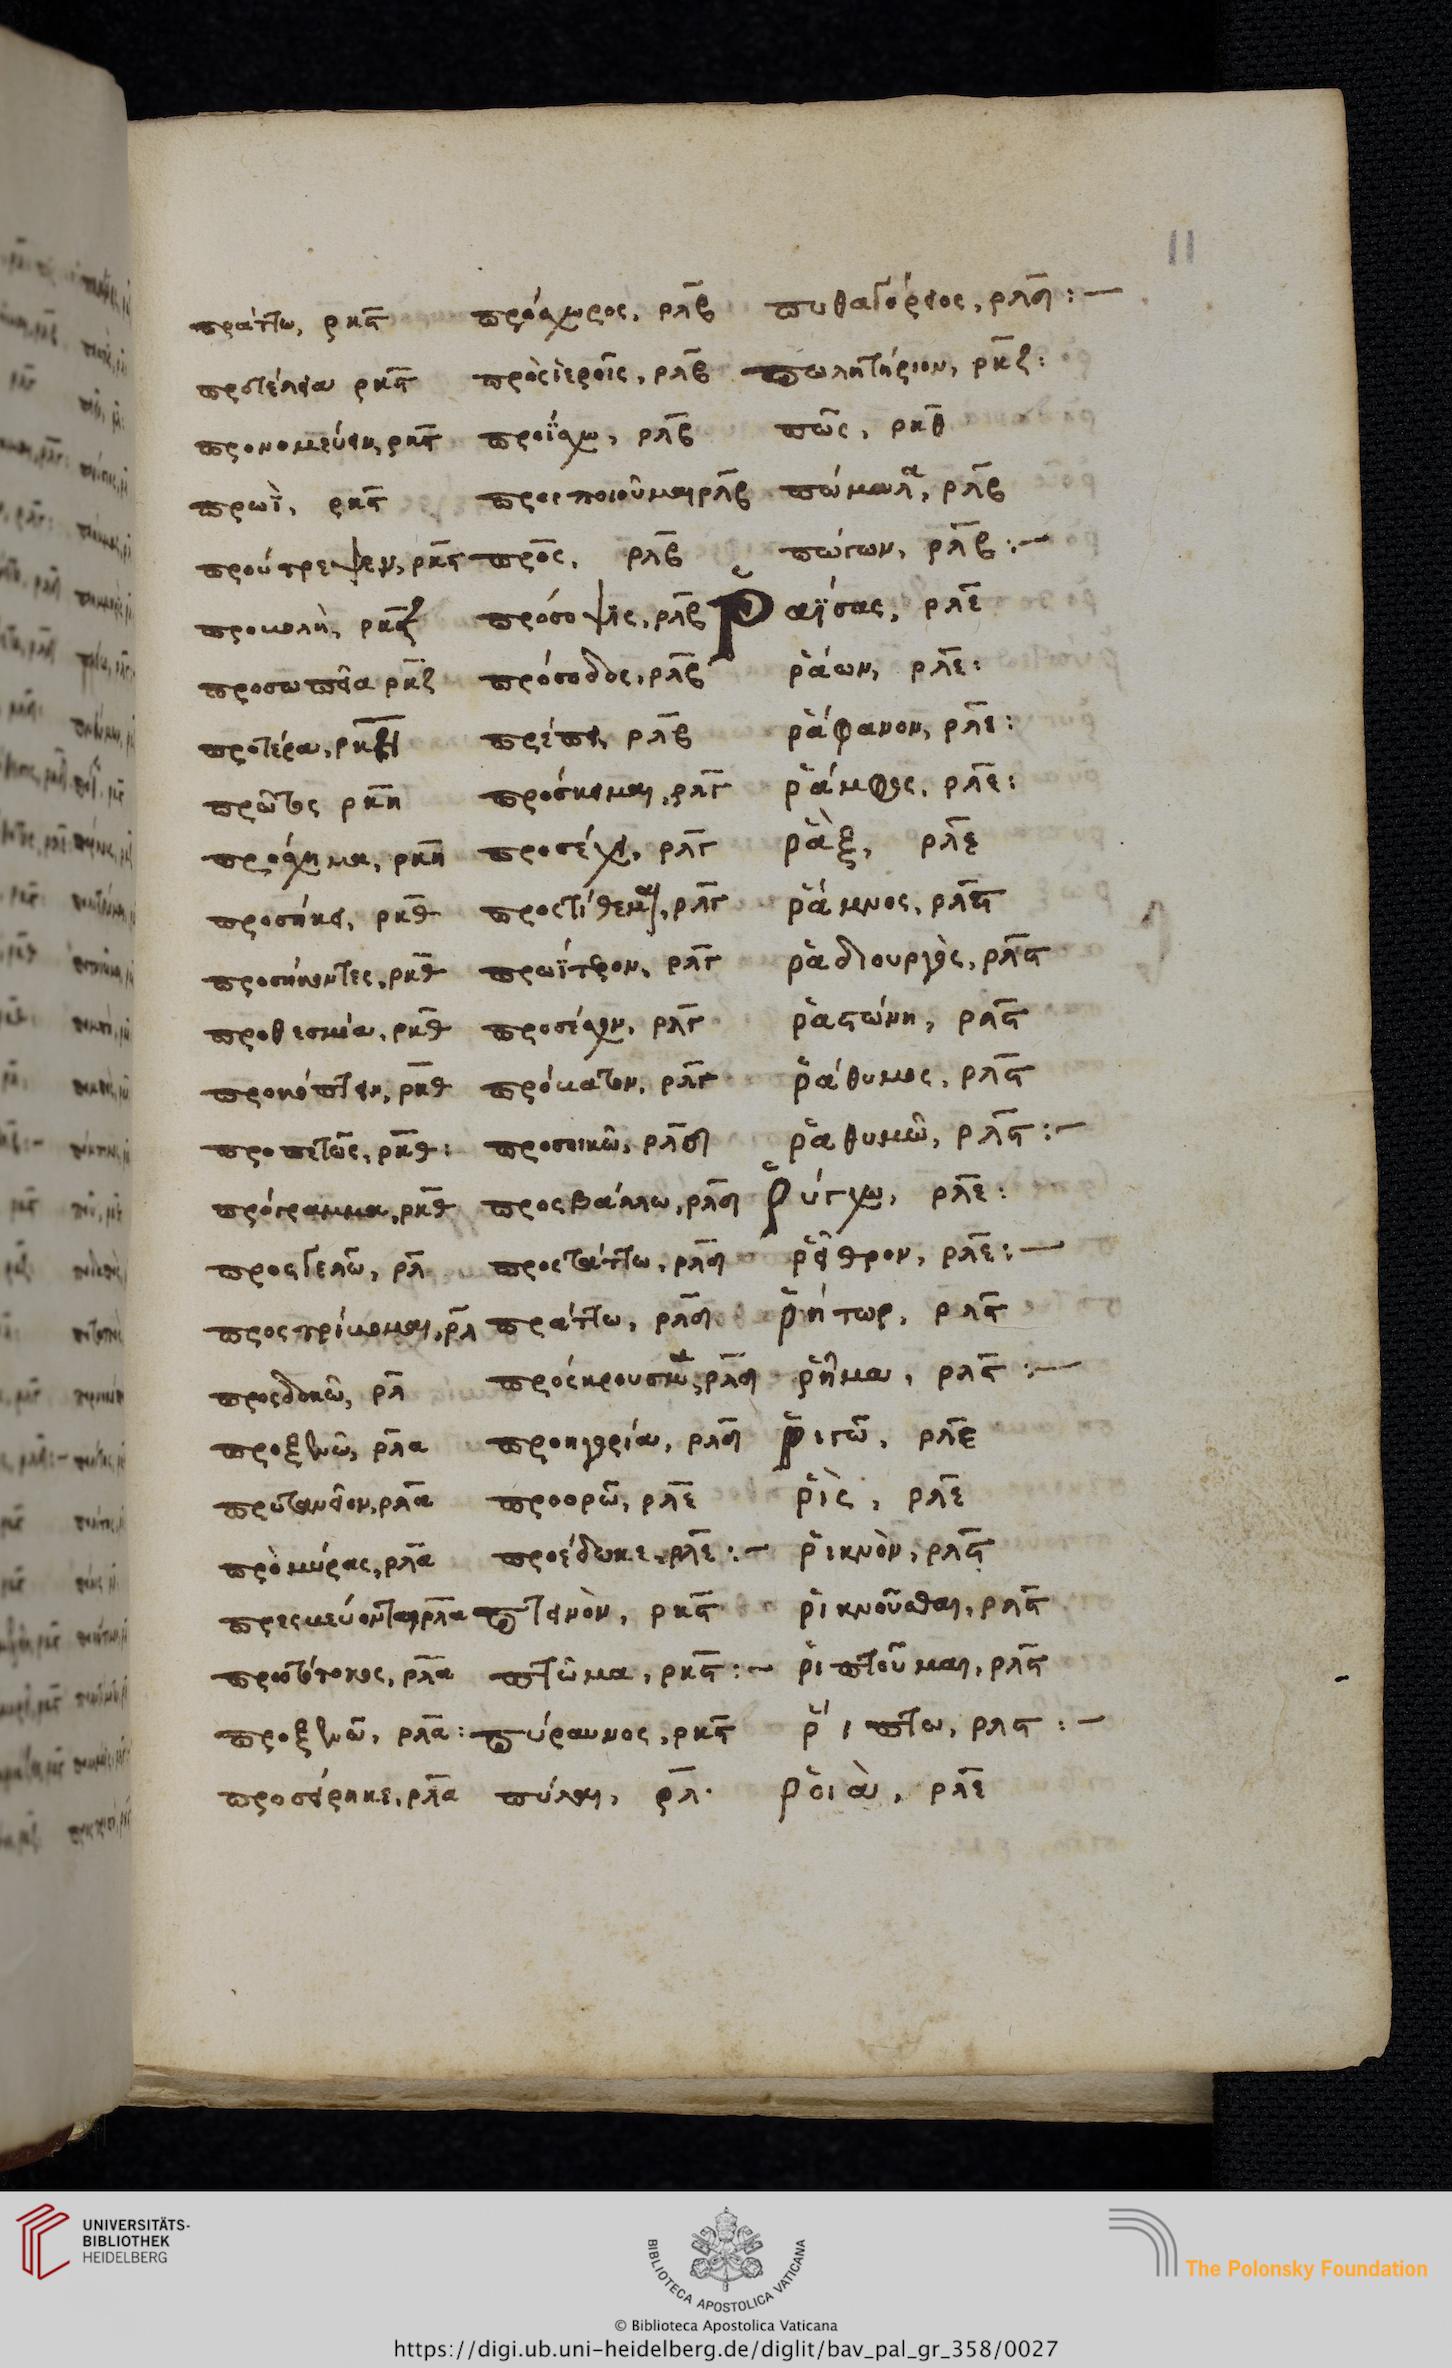 11
πράττω, ρκϛ
προτέλεια ρκϛ
προνομεύειν, ρκϛ
πρωῒ, ρκϛ
προύτρεψεν, ρκϛ
προβολὴ, ρκζ
προσωπεῖα ρκζ
προτέρα, ρκζ
πρῶτος ρκη
πρόσχημα, ρκη
προσήκει, ρκθ
προσήκοντες, ρκθ
προθεσμία, ρκθ
προκόπτειν, ρκθ
προπετῶς, ρκθ:
πρόγραμμα, ρκθ
προσγελῶ, ρλ
προστρίβομαι, ρλ
προσδοκῶ, ρλ
προξενῶ, ρλα
πρυτανεῖον, ρλα
πρὸ μύρας, ρλα
πρεσβεύονται ρλα
πρωτότοκος, ρλα
προξενῶ, ρλα:
προσείρηκε, ρλα
πρόχωρος, ρλβ
πρὸς ἱεροῖς, ρλβ
προΐσχω, ρλβ
προσποιοῦμαι ρλβ
πρὸς, ρλβ
πρόσοψις, ρλβ
πρόσοδος, ρλβ
πρέπει, ρλβ
πρόσκειμαι, ρλγ
προσέχει, ρλγ
προστίθεμαι, ρλγ
πρωΐτερον, ρλγ
προσέχειν, ρλγ
πρόβατον, ρλγ
προσοικῶ, ρλδ
προσβάλλω, ρλδ
προστάττω, ρλδ
πράττω, ρλδ
πρόσκρουσμα, ρλδ
προηγορία, ρλδ
προορῶ, ρλε
προέδωκε, ρλε:
πτηνὸν, ρκϛ
πτῶμα, ρκϛ:
πύραυνος, ρκϛ
πύλαι, ρλ.
πυθαγόρειος, ρλδ:
πωλητήριον, ρκζ:
πῶς, ρκθ
πώμαλα, ρλβ
πώγων, ρλβ:
Ῥαΐσας, ρλε
ῥάων, ρλε:
ῥάφανον, ρλε:
ῥάμφος, ρλε:
ῥὰξ, ρλε
ῥάμνος, ρλϛ
ῥαδιουργὸς, ρλϛ
ῥαστώνη, ρλϛ
ῥάθυμος, ρλϛ
ῥαθυμῶ, ρλϛ:
ῥέγχω, ρλε:
ῥεῖθρον, ρλε:
ῥήτωρ, ρλϛ
ῥῆμα, ρλϛ:
ῥιγῶ, ρλε
ῥὶς, ρλε
ῥικνὸν, ρλϛ
ῥικνοῦσθαι, ρλϛ
ῥιπτοῦμαι, ρλϛ
ῥίπτω, ρλϛ:
ῥοιὰ, ρλε
UNIVERSITÄTS-
BIBLIOTHEK
HEIDELBERG
BIBLIOTECA APOSTOLICA VATICANA
The Polonsky Foundation
© Biblioteca Apostolica Vaticana
https://digi.ub.uni-heidelberg.de/diglit/bav_pal_gr_358/0027